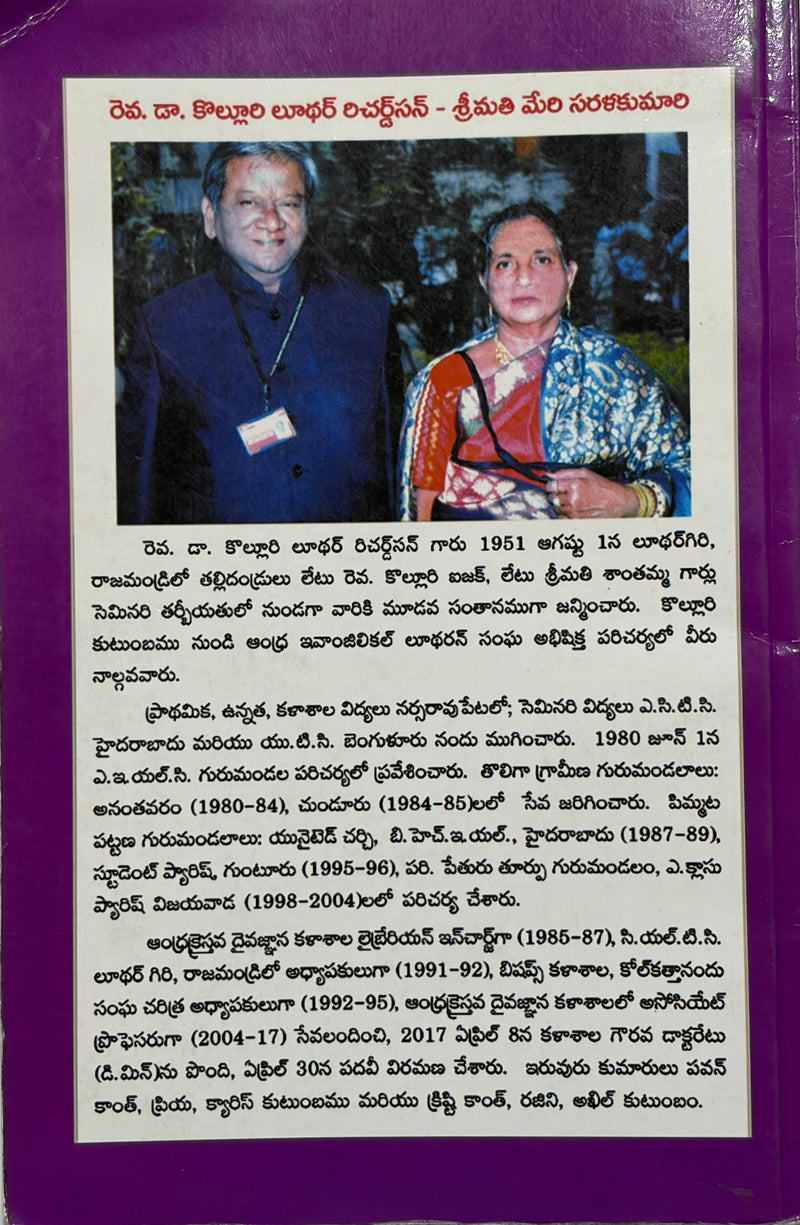 రెవ. డా. కొల్లూరి లూథర్ రిచర్డ్‌సన్ - శ్రీమతి మేరి సరళకుమారి
రెవ. డా. కొల్లూరి లూథర్ రిచర్డ్‌సన్ గారు 1951 ఆగష్టు 1న లూథర్‌గిరి,
రాజమండ్రిలో తల్లిదండ్రులు లేటు రెవ. కొల్లూరి ఐజక్, లేటు శ్రీమతి శాంతమ్మ గార్లు
సెమినరి తర్ఫీయతులో నుండగా వారికి మూడవ సంతానముగా జన్మించారు. కొల్లూరి
కుటుంబము నుండి ఆంధ్ర ఇవాంజిలికల్ లూథరన్ సంఘ అభిషిక్త పరిచర్యలో వీరు
నాల్గవవారు.
ప్రాథమిక, ఉన్నత, కళాశాల విద్యలు నర్సరావుపేటలో; సెమినరి విద్యలు ఎ.సి.టి.సి.
హైదరాబాదు మరియు యు.టి.సి. బెంగుళూరు నందు ముగించారు. 1980 జూన్ 1న
ఎ.ఇ.యల్.సి. గురుమండల పరిచర్యలో ప్రవేశించారు. తొలిగా గ్రామీణ గురుమండలాలు:
అనంతవరం (1980-84), చుండూరు (1984-85)లలో సేవ జరిగించారు. పిమ్మట
పట్టణ గురుమండలాలు: యునైటెడ్ చర్చి, బి.హెచ్.ఇ.యల్., హైదరాబాదు (1987-89),
స్టూడెంట్ ప్యారిష్, గుంటూరు (1995-96), పరి. పేతురు తూర్పు గురుమండలం, ఎ.క్లాసు
ప్యారిష్ విజయవాడ (1998-2004)లలో పరిచర్య చేశారు.
ఆంధ్రక్రైస్తవ దైవజ్ఞాన కళాశాల లైబ్రేరియన్ ఇన్‌చార్జ్‌గా (1985-87), సి.యల్.టి.సి.
లూథర్ గిరి, రాజమండ్రిలో అధ్యాపకులుగా (1991-92), బిషప్స్ కళాశాల, కోల్‌కత్తానందు
సంఘ చరిత్ర అధ్యాపకులుగా (1992-95), ఆంధ్రక్రైస్తవ దైవజ్ఞాన కళాశాలలో అసోసియేట్
ప్రొఫెసరుగా (2004-17) సేవలందించి, 2017 ఏప్రిల్ 8న కళాశాల గౌరవ డాక్టరేటు
(డి.మిన్)ను పొంది, ఏప్రిల్ 30న పదవీ విరమణ చేశారు. ఇరువురు కుమారులు పవన్
కాంత్, ప్రియ, క్యారిస్ కుటుంబము మరియు క్రిష్టి కాంత్, రజిని, అఖిల్ కుటుంబం.